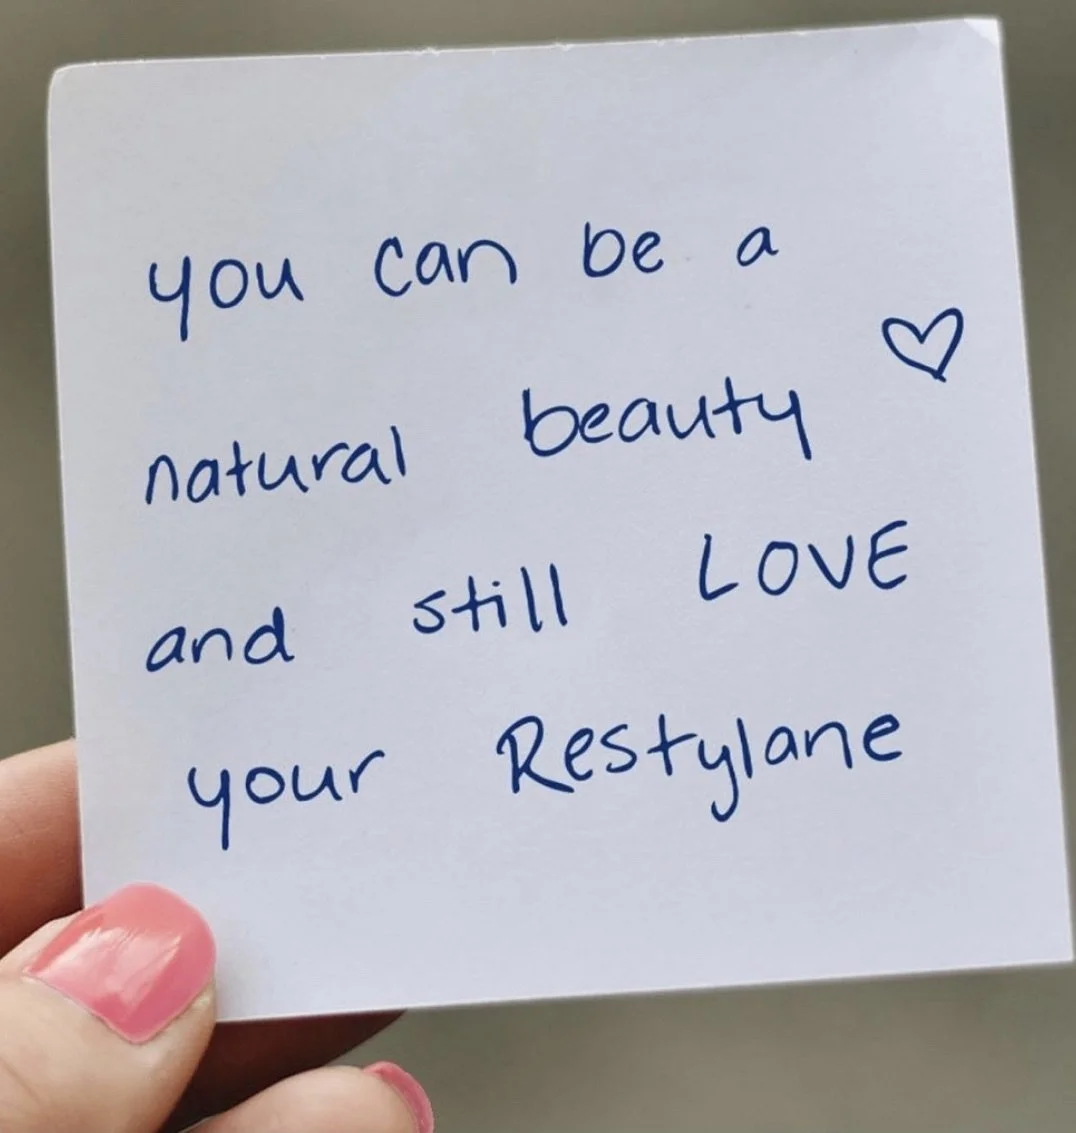 you can be a
natural beauty ♡
and still LOVE
your Restylane